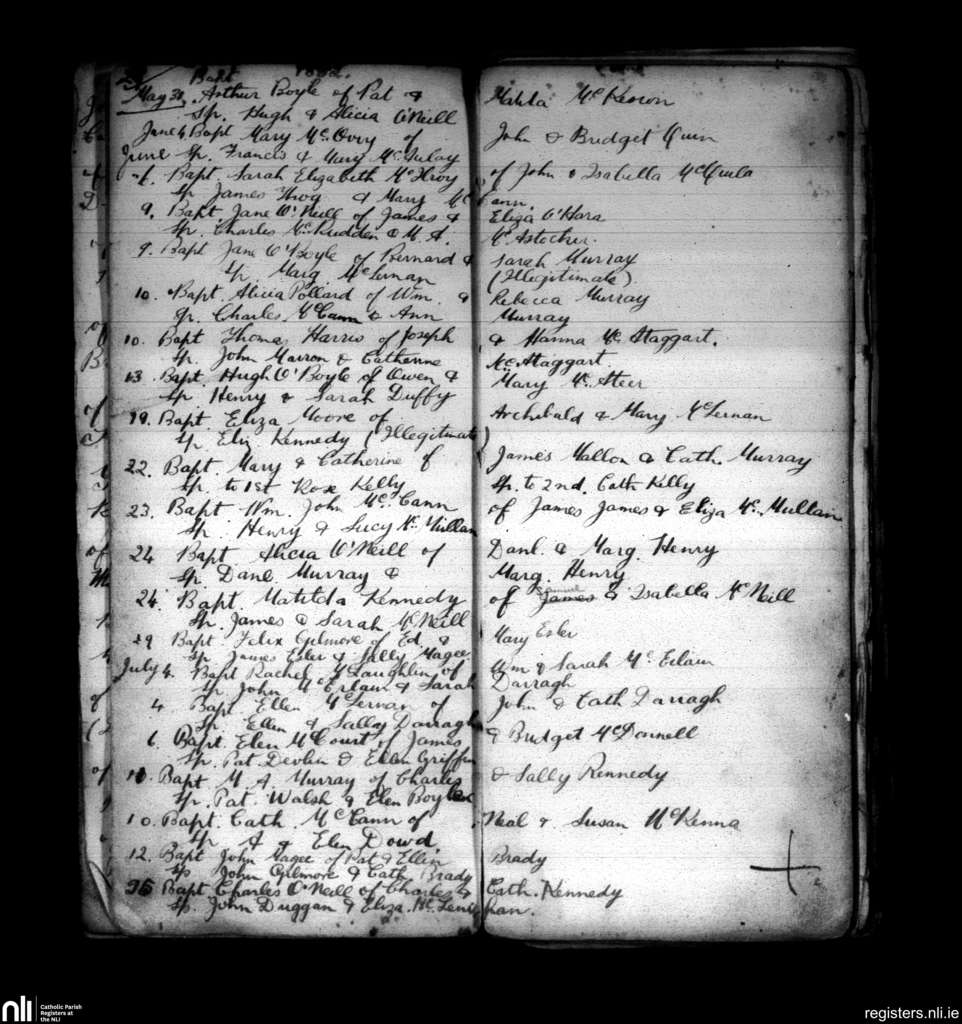 Bapt
May 31. Arthur Boyle of Pat & Matilda McKeown
Sp. Hugh & Alicia O'Neill
June 4 Bapt Mary McOvry of John & Bridget Quin
June Sp. Francis & Mary McAulay
7. Bapt. Sarah Elizabeth McIlroy of John & Isabella McQuila
Sp James & Mary McCann.
9. Bapt. Jane O'Neill of James & Eliza O'Hara
Sp. Charles McRudden & M. A. McAstocker.
9. Bapt Jane O'Boyle of Bernard & Sarah Murray
Sp. Marg McLernan (Illegitimate)
10. Bapt. Alicia Pollard of Wm. & Rebecca Murray
Sp. Charles McCann & Ann Murray
10. Bapt Thomas Harris of Joseph & Hanna McStaggart.
Sp. John Marron & Catherine McStaggart
13. Bapt. Hugh O'Boyle of Owen & Mary McSteer
Sp. Henry & Sarah Duffy
19. Bapt. Eliza Moore of Archibald & Mary McLernan
Sp. Eliz Kennedy (Illegitimate)
22. Bapt. Mary & Catherine of James Mallon & Cath. Murray
Sp. to 1st Rose Kelly Sp. to 2nd. Cath Kelly
23. Bapt. Wm. John McCann of James James & Eliza McMullan
Sp. Henry & Lucy McMullan
24 Bapt Alicia O'Neill of Danl. & Marg. Henry
Sp. Danl Murray & Marg. Henry
24. Bapt. Matilda Kennedy of James Samuel & Isabella McNeill
Sp. James & Sarah McNeill
29 Bapt. Felix Gilmore of Ed. & Mary Esler
Sp James Esler & Sally Magee
July 4. Bapt Rachel McLaughlin of Wm & Sarah McErlain
Sp. John McErlain & Sarah Darragh
4 Bapt. Ellen McLernan of John & Cath Darragh
Sp. Ellen & Sally Darragh
6. Bapt. Elen McCourt of James & Bridget McDonnell
Sp. Pat Devlin & Ellen Griffin
10. Bapt M. A. Murray of Charles & Sally Kennedy
Sp. Pat. Walsh & Elen Boyle
10. Bapt. Cath. McCann of Neal & Susan McKenna
Sp A & Elen Dowd.
12. Bapt John Magee of Pat & Ellen Brady
Sp John Gilmore & Cath Brady
Bapt Charles O'Neill of Charles & Cath. Kennedy
Sp. John Duggan & Eliza McLenighan.
nli
Catholic Parish
Registers at
the NLI
registers.nli.ie